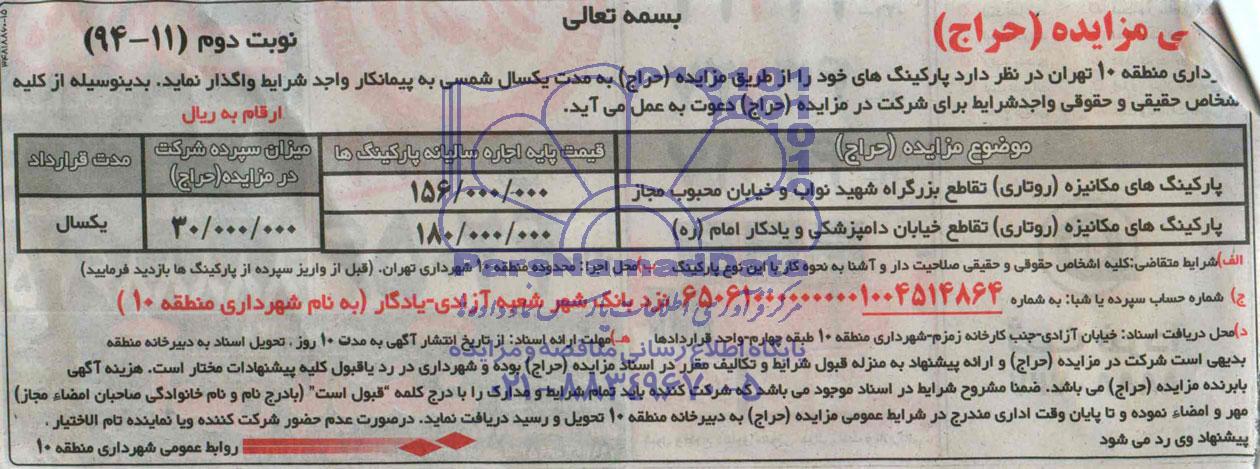 بسمه تعالی
ی مزایده (حراج)
نوبت دوم (۱۱-۹۴)
رداری منطقه ۱۰ تهران در نظر دارد پارکینگ های خود را از طریق مزایده (حراج) به مدت یکسال شمسی به پیمانکار واجد شرایط واگذار نماید. بدینوسیله از کلیه
شخاص حقیقی و حقوقی واجدشرایط برای شرکت در مزایده (حراج) دعوت به عمل می آید.
ارقام به ریال
موضوع مزایده (حراج) قیمت پایه اجاره سالیانه پارکینگ ها میزان سپرده شرکت در مزایده(حراج) مدت قرارداد
پارکینگ های مکانیزه (روتاری) تقاطع بزرگراه شهید نواب و خیابان محبوب مجاز ۱۵۶/۰۰۰/۰۰۰
پارکینگ های مکانیزه (روتاری) تقاطع خیابان دامپزشکی و یادکار امام (ره) ۱۸۰/۰۰۰/۰۰۰ ۳۰/۰۰۰/۰۰۰ یکسال
الف)شرایط متقاضی:کلیه اشخاص حقوقی و حقیقی صلاحیت دار و آشنا به نحوه کار با این نوع پارکینگ ب)محل اجرا: محدوده منطقه ۱۰ شهرداری تهران. (قبل از واریز سپرده از پارکینگ ها بازدید فرمایید)
ج) شماره حساب سپرده یا شبا: به شماره نزد بانک شهر شعبه آزادی-یادگار (به نام شهرداری منطقه ۱۰ )
د)محل دریافت اسناد: خیابان آزادی-جنب کارخانه زمزم-شهرداری منطقه ۱۰ طبقه چهارم-واحد قراردادها هـ)مهلت ارائه اسناد: از تاریخ انتشار آگهی به مدت ۱۰ روز ، تحویل اسناد به دبیرخانه منطقه
بدیهی است شرکت در مزایده (حراج) و ارائه پیشنهاد به منزله قبول شرایط و تکالیف مقرر در اسناد مزایده (حراج) بوده و شهرداری در رد یاقبول کلیه پیشنهادات مختار است. هزینه آگهی
بابرنده مزایده (حراج) می باشد. ضمنا مشروح شرایط در اسناد موجود می باشد که شرکت کننده باید تمام شرایط و مدارک را با درج کلمه "قبول است" (بادرج نام و نام خانوادگی صاحبان امضاء مجاز)
مهر و امضاء نموده و تا پایان وقت اداری مندرج در شرایط عمومی مزایده (حراج) به دبیرخانه منطقه ۱۰ تحویل و رسید دریافت نماید. درصورت عدم حضور شرکت کننده ویا نماینده تام الاختیار ،
پیشنهاد وی رد می شود
روابط عمومی شهرداری منطقه ۱۰
ParsNamadData
پایگاه اطلاع رسانی مناقصه و مزایده